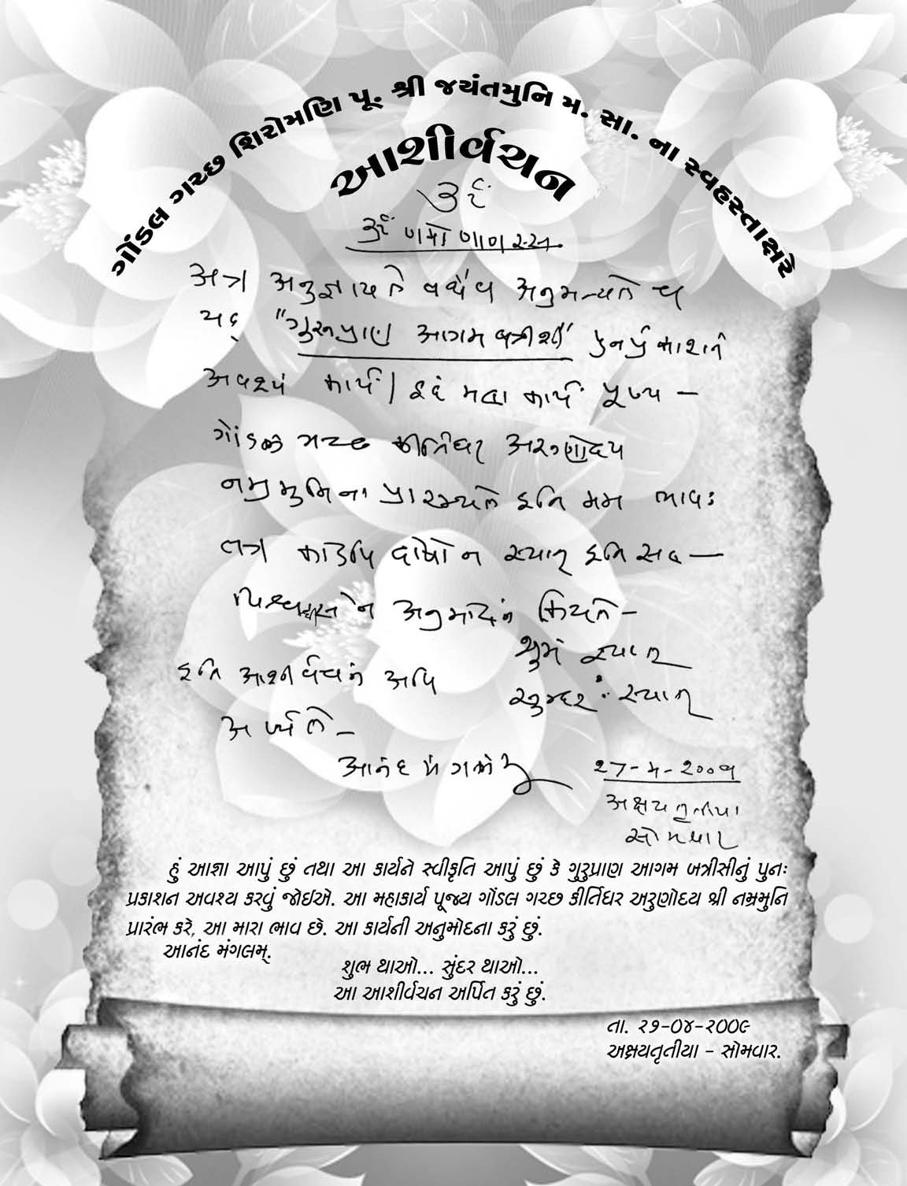 ગોંડલ ગચ્છ શિરોમણિ પૂ. શ્રી જયંતમુનિ મ. સા. ના સ્વહસ્તાક્ષરે
આશીર્વચન
ૐ
ૐ
અત્ર અનુજ્ઞાયતે અનુમન્યતે ચ
યદ્ "ગુરુપ્રાણ આગમ બત્રીશી"
અવશ્યં કાર્ય | ઇદં મહા કાર્ય પૂજ્ય –
ગોંડલ ગચ્છ કીર્તિધર અરુણોદય
નમ્રમુનિના ઇતિ મમ ભાવઃ
તત્ર કોઽપિ દોષો ન સ્યાત્ ઇતિ
અનુમોદનં ક્રિયતે –
શુભં સ્યાત્
ઇતિ આશીર્વચનં અપિ
સુન્દરં સ્યાત્
અર્પ્યતે –
આનંદ મંગલમ્
અક્ષય તૃતીયા
સોમવાર
હું આજ્ઞા આપું છું તથા આ કાર્યને સ્વીકૃતિ આપું છું કે ગુરુપ્રાણ આગમ બત્રીસીનું પુનઃ
પ્રકાશન અવશ્ય કરવું જોઇએ. આ મહાકાર્ય પૂજ્ય ગોંડલ ગચ્છ કીર્તિધર અરુણોદય શ્રી નમ્રમુનિ
પ્રારંભ કરે, આ મારા ભાવ છે. આ કાર્યની અનુમોદના કરું છું.
આનંદ મંગલમ્.
શુભ થાઓ... સુંદર થાઓ...
આ આશીર્વચન અર્પિત કરું છું.
તા. ૨૭-૦૪-૨૦૦૯
અક્ષયતૃતીયા - સોમવાર.